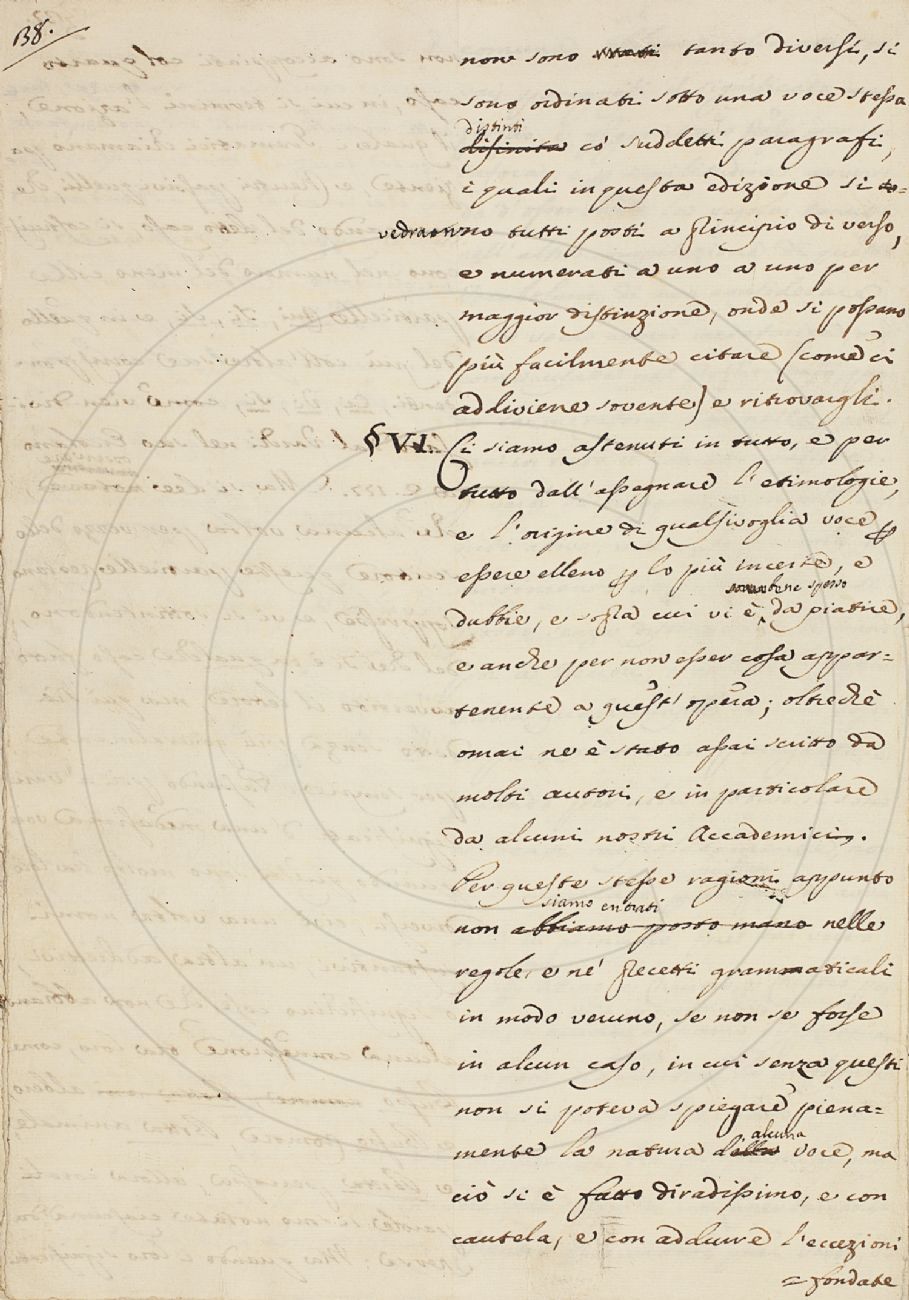 138.
non sono stati tanto diversi, si
sono ordinati sotto una voce stessa
distinti
co' suddetti paragrafi,
i quali in questa edizione si
vedranno tutti posti a principio di verso,
e numerati a uno a uno per
maggior distinzione, onde si possano
più facilmente citare (come ci
addiviene sovente) e ritrovargli.
§ VI. Ci siamo astenuti in tutto, e per
tutto dall'assegnare l'etimologie,
e l'origine di qualsivoglia voce p
essere elleno p lo più incerte, e
bene spesso
dubbie, e sopra cui vi è da piatire,
e anche per non esser cosa appar=
tenente a quest'opera; oltreche
omai ne è stato assai scritto da
molti autori, e in particolare
da alcuni nostri Accademici.
Per queste stesse ragioni appunto
siamo entrati
non abbiamo posto mano nelle
regole, e ne' precetti grammaticali
in modo veruno, se non se forse
in alcun caso, in cui senza questi
non si poteva spiegare piena=
alcuna
mente la natura della voce, ma
ciò si è fatto diradissimo, e con
cautela, e con addurre l'eccezioni
=fondate